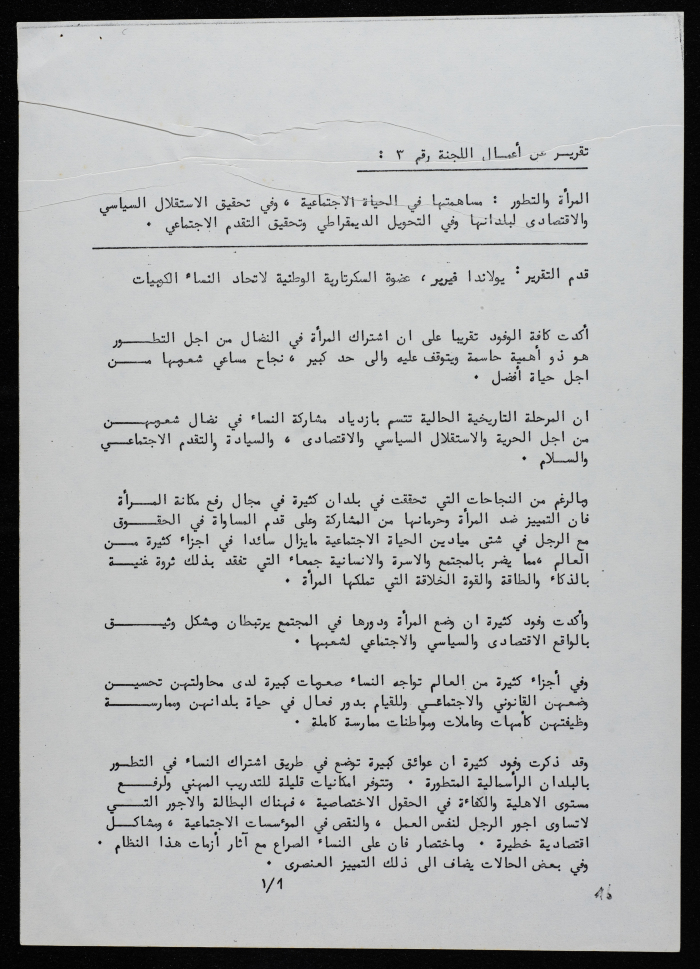 تقريــر عن أعمــال اللجنة رقم ٣ :
المرأة والتطور : مساهمتها في الحياة الاجتماعية ، وفي تحقيق الاستقلال السياسي
والاقتصادى لبلدانها وفي التحويل الديمقراطي وتحقيق التقدم الاجتماعي ٠
قدم التقرير : يولاندا فيرير ، عضوة السكرتارية الوطنية لاتحاد النساء الكوبيات
أكدت كافة الوفود تقريبا على ان اشتراك المرأة في النضال من اجل التطــور
هو ذو أهمية حاسمة ويتوقف عليه والى حد كبير ، نجاح مساعي شعوبها مــن
اجل حياة أفضل ٠
ان المرحلة التاريخية الحالية تتسم بازدياد مشاركة النساء في نضال شعوبهــن
من اجل الحرية والاستقلال السياسي والاقتصادى ، والسيادة والتقدم الاجتماعــي
والســلام ٠
وبالرغم من النجاحات التي تحققت في بلدان كثيرة في مجال رفع مكانة المــرأة
فان التمييز ضد المرأة وحرمانها من المشاركة وعلى قدم المساواة في الحقــوق
مع الرجل في شتى ميادين الحياة الاجتماعية مايزال سائدا في اجزاء كثيرة مــن
العالم ،مما يضر بالمجتمع والاسرة والانسانية جمعاء التي تفقد بذلك ثروة غنيــة
بالذكاء والطاقة والقوة الخلاقة التي تملكها المرأة ٠
وأكدت وفود كثيرة ان وضع المرأة ودورها في المجتمع يرتبطان وبشكل وثيــق
بالواقع الاقتصادى والسياسي والاجتماعي لشعبها ٠
وفي أجزاء كثيرة من العالم تواجه النساء صعوبات كبيرة لدى محاولتهن تحسيــن
وضعهن القانوني والاجتماعي وللقيام بدور فعال في حياة بلدانهن وممارســة
وظيفتهن كأمهات وعاملات ومواطنات ممارسة كاملة ٠
وقد ذكرت وفود كثيرة ان عوائق كبيرة توضع في طريق اشتراك النساء في التطور
بالبلدان الرأسمالية المتطورة ٠ وتتوفر امكانيات قليلة للتدريب المهني ولرفــع
مستوى الاهلية والكفاءة في الحقول الاختصاصية ، فهناك البطالة والاجور التــي
لاتساوى اجور الرجل لنفس العمل ، والنقص في المؤسسات الاجتماعية ، ومشاكــل
اقتصادية خطيرة ٠ وباختصار فان على النساء الصراع مع آثار أزمات هذا النظام ٠
وفي بعض الحالات يضاف الى ذلك التمييز العنصرى ٠
١/١
16